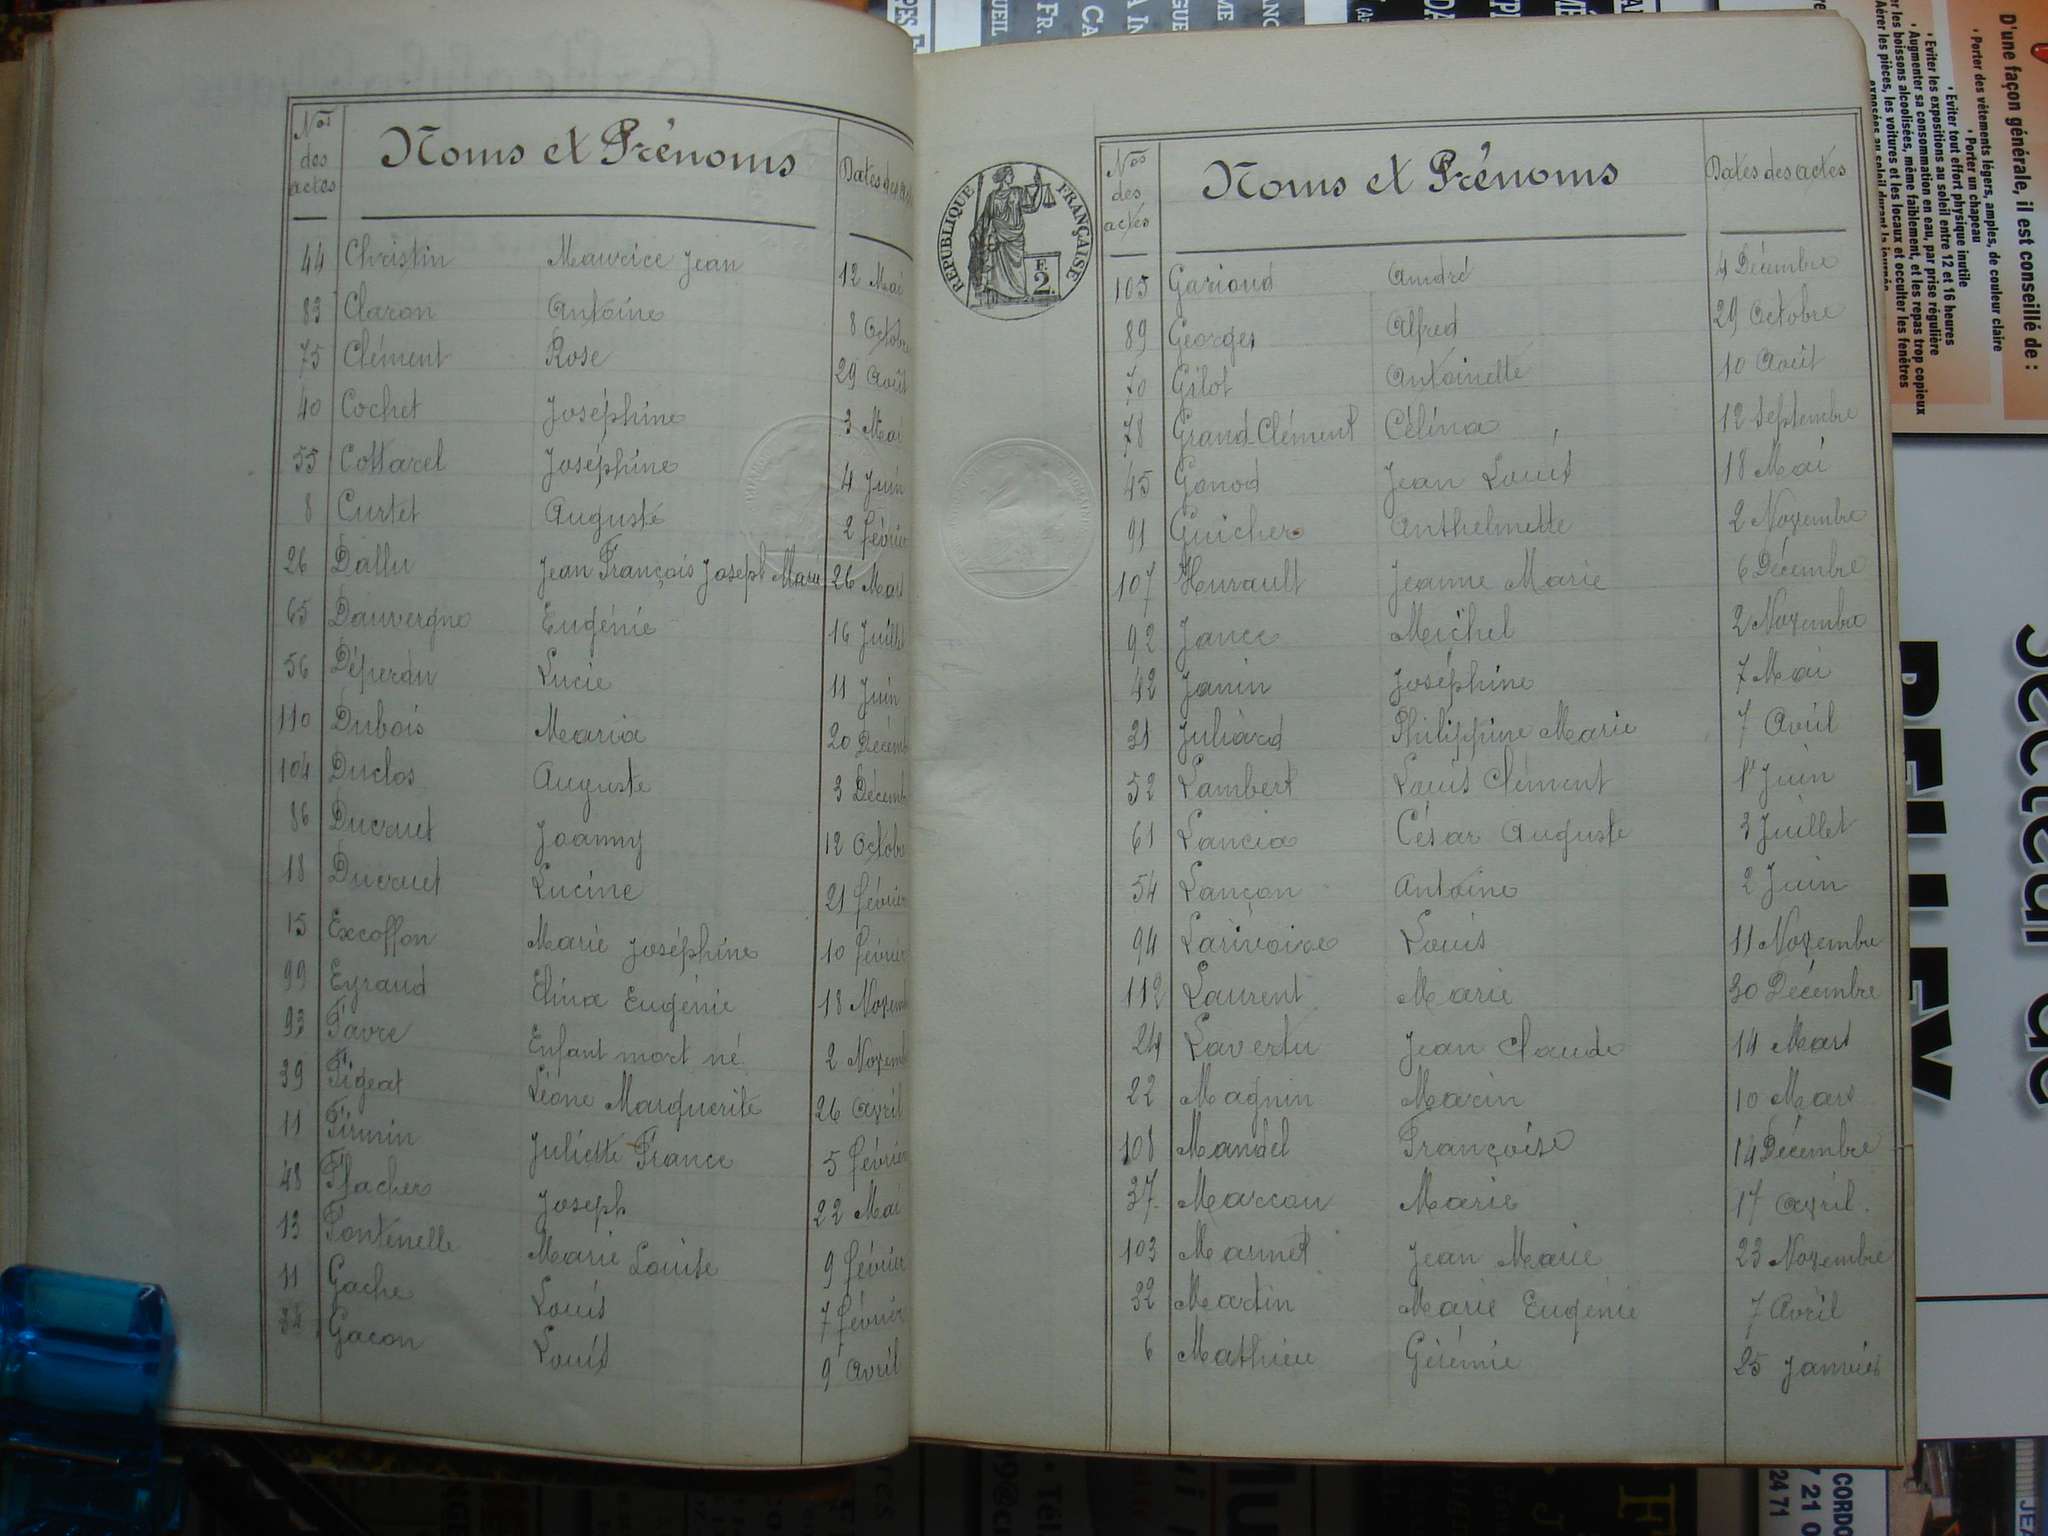 Nos des actes Noms et Prénoms Dates des actes
44 Christin Maurice Jean 12 Mai
83 Claron Antoine 8 Octobre
75 Clément Rose 29 Août
40 Cochet Joséphine 3 Mai
55 Cottarel Joséphine 4 Juin
8 Curtet Auguste 2 février
26 Dallu Jean François Joseph Marie 26 Mars
65 Dauvergne Eugénie 16 Juillet
56 Déperdu Lucie 11 Juin
110 Dubois Maria 20 Décemb
104 Duclos Auguste 3 Décemb
86 Ducruet Joanny 12 Octobre
18 Ducruet Lucine 21 février
15 Excoffon Marie Joséphine 10 février
99 Eyraud Elina Eugénie 18 Novemb
93 Favre Enfant mort né 2 Novemb
39 Figeat Léone Marguerite 26 Avril
11 Firmin Juliette France 5 février
48 Flacher Joseph 22 Mai
13 Fontenelle Marie Louise 9 février
11 Gache Louis 7 février
Gacon Louis 9 Avril
REPUBLIQUE FRANÇAISE
F. 2.
Nos des actes Noms et Prénoms Dates des actes
105 Gariond André 4 Décembre
89 Georges Alfred 29 Octobre
70 Gilot Antoinette 10 Août
78 Grand-Clément Célina 12 Septembre
45 Gonod Jean Louis 18 Mai
91 Guicher Anthelmette 2 Novembre
107 Hurault Jeanne Marie 6 Décembre
92 Jance Michel 2 Novembre
42 Janin Joséphine 7 Mai
31 Juliard Philippine Marie 7 Avril
52 Lambert Louis Clément 1er Juin
61 Lancia César Auguste 3 Juillet
54 Lançon Antoine 2 Juin
94 Larivoire Louis 11 Novembre
112 Laurent Marie 30 Décembre
24 Lavertu Jean Claude 14 Mars
22 Magnin Marin 10 Mars
108 Mandel Françoise 14 Décembre
37 Marcon Marie 17 Avril.
103 Marmet Jean Marie 23 Novembre
32 Martin Marie Eugénie 7 Avril
6 Mathieu Gérémie 25 Janvier
D'une façon générale, il est conseillé de :
• Porter des vêtements légers, amples, de couleur claire
• Porter un chapeau
• Eviter tout effort physique inutile
• Eviter les expositions au soleil entre 12 et 16 heures
• Augmenter sa consommation en eau, par prise régulière
er les boissons alcoolisées, même faiblement, et les repas trop copieux
Aérer les pièces, les voitures et les locaux et occulter les fenêtres
Secteur de
BELLEY